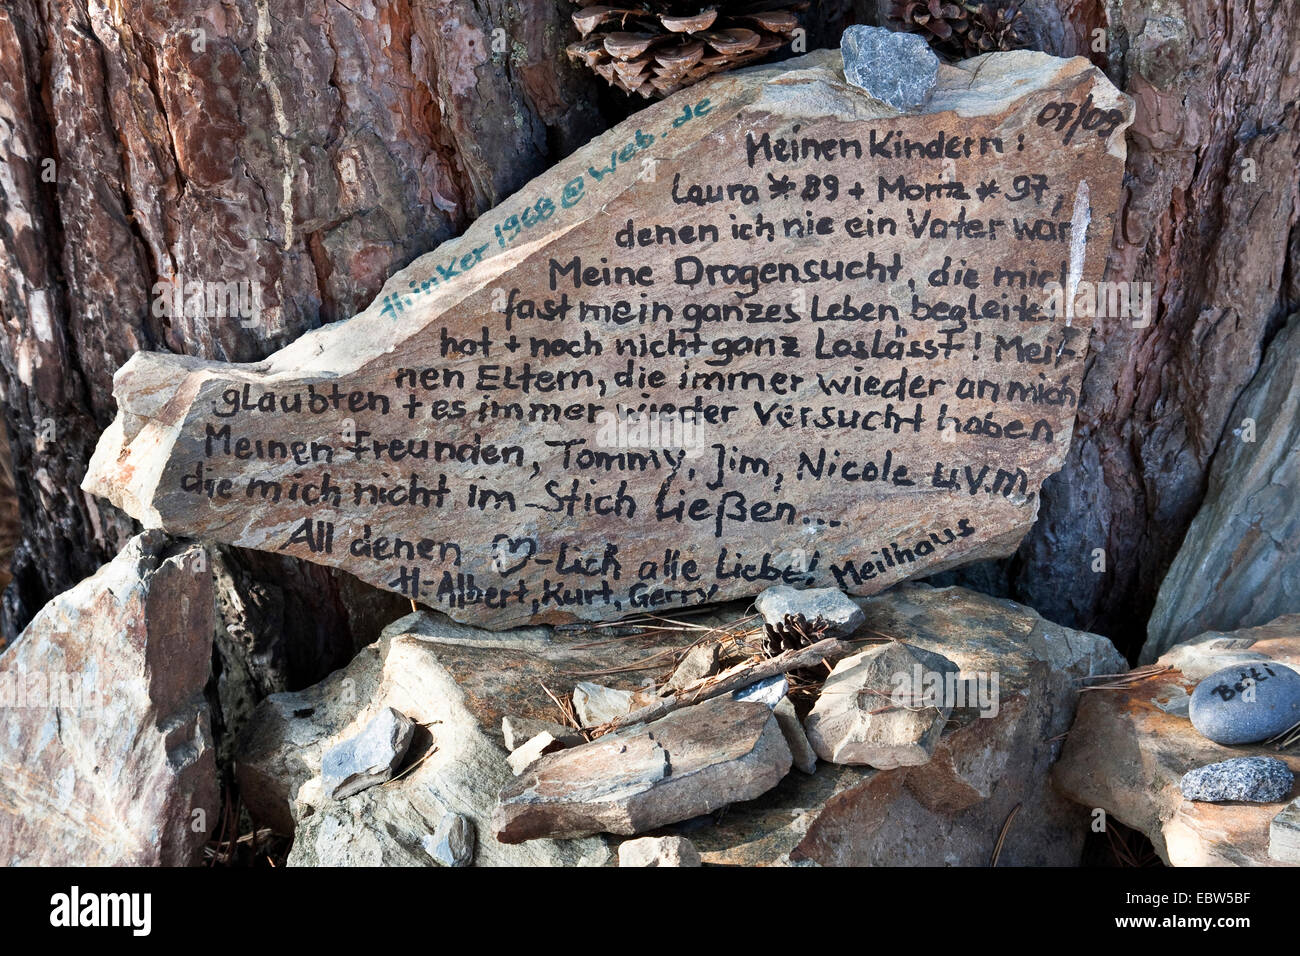 07/09
Meinen Kindern!
Laura *89 + Moritz *97,
denen ich nie ein Vater war
Meine Drogensucht, die mich
fast mein ganzes Leben begleitet
hat + noch nicht ganz loslässt! Mei-
nen Eltern, die immer wieder an mich
glaubten + es immer wieder versucht haben
Meinen Freunden, Tommy, Jim, Nicole u.v.m,
die mich nicht im Stich ließen...
All denen ♡-lich alle Liebe! Meilhaus
H-Albert, Kurt, Gerry
thinker1968@web.de
Betti
alamy
alamy
Image ID: EBW5BF
www.alamy.com